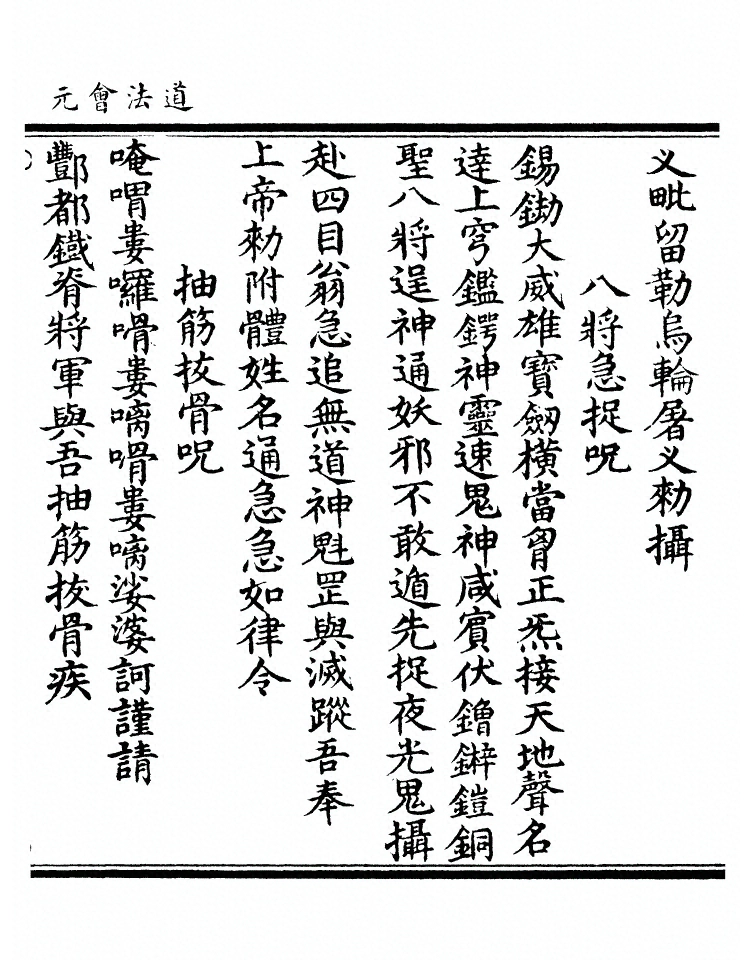 道法會元
义毗留勒烏輪屠义勑攝
八將急捉呪
錫鋤大威雄寶劒橫當胷正炁接天地聲名
達上穹鑑鍔神靈速鬼神咸賓伏鐕鎞鎧銅
聖八將逞神通妖邪不敢遁先捉夜光鬼攝
赴四目翁急追無道神魁罡與滅蹤吾奉
上帝勑附體姓名通急急如律令
抽筋拔骨呪
唵喟婁囉嗗婁嚆嗗婁嚆娑婆訶謹請
酆都鐵脊將軍與吾抽筋拔骨疾